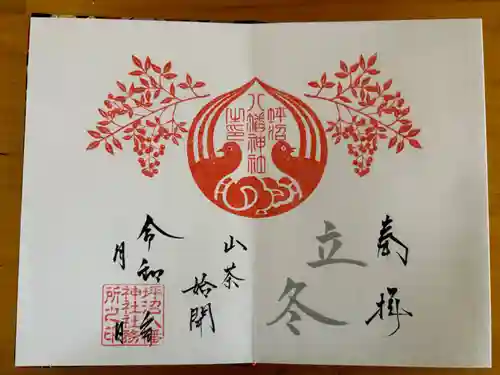 坪沼
八幡神社
之印
奉拝
立冬
山茶
始開
令和 年
月 日
坪沼八幡
神社社務
所之印